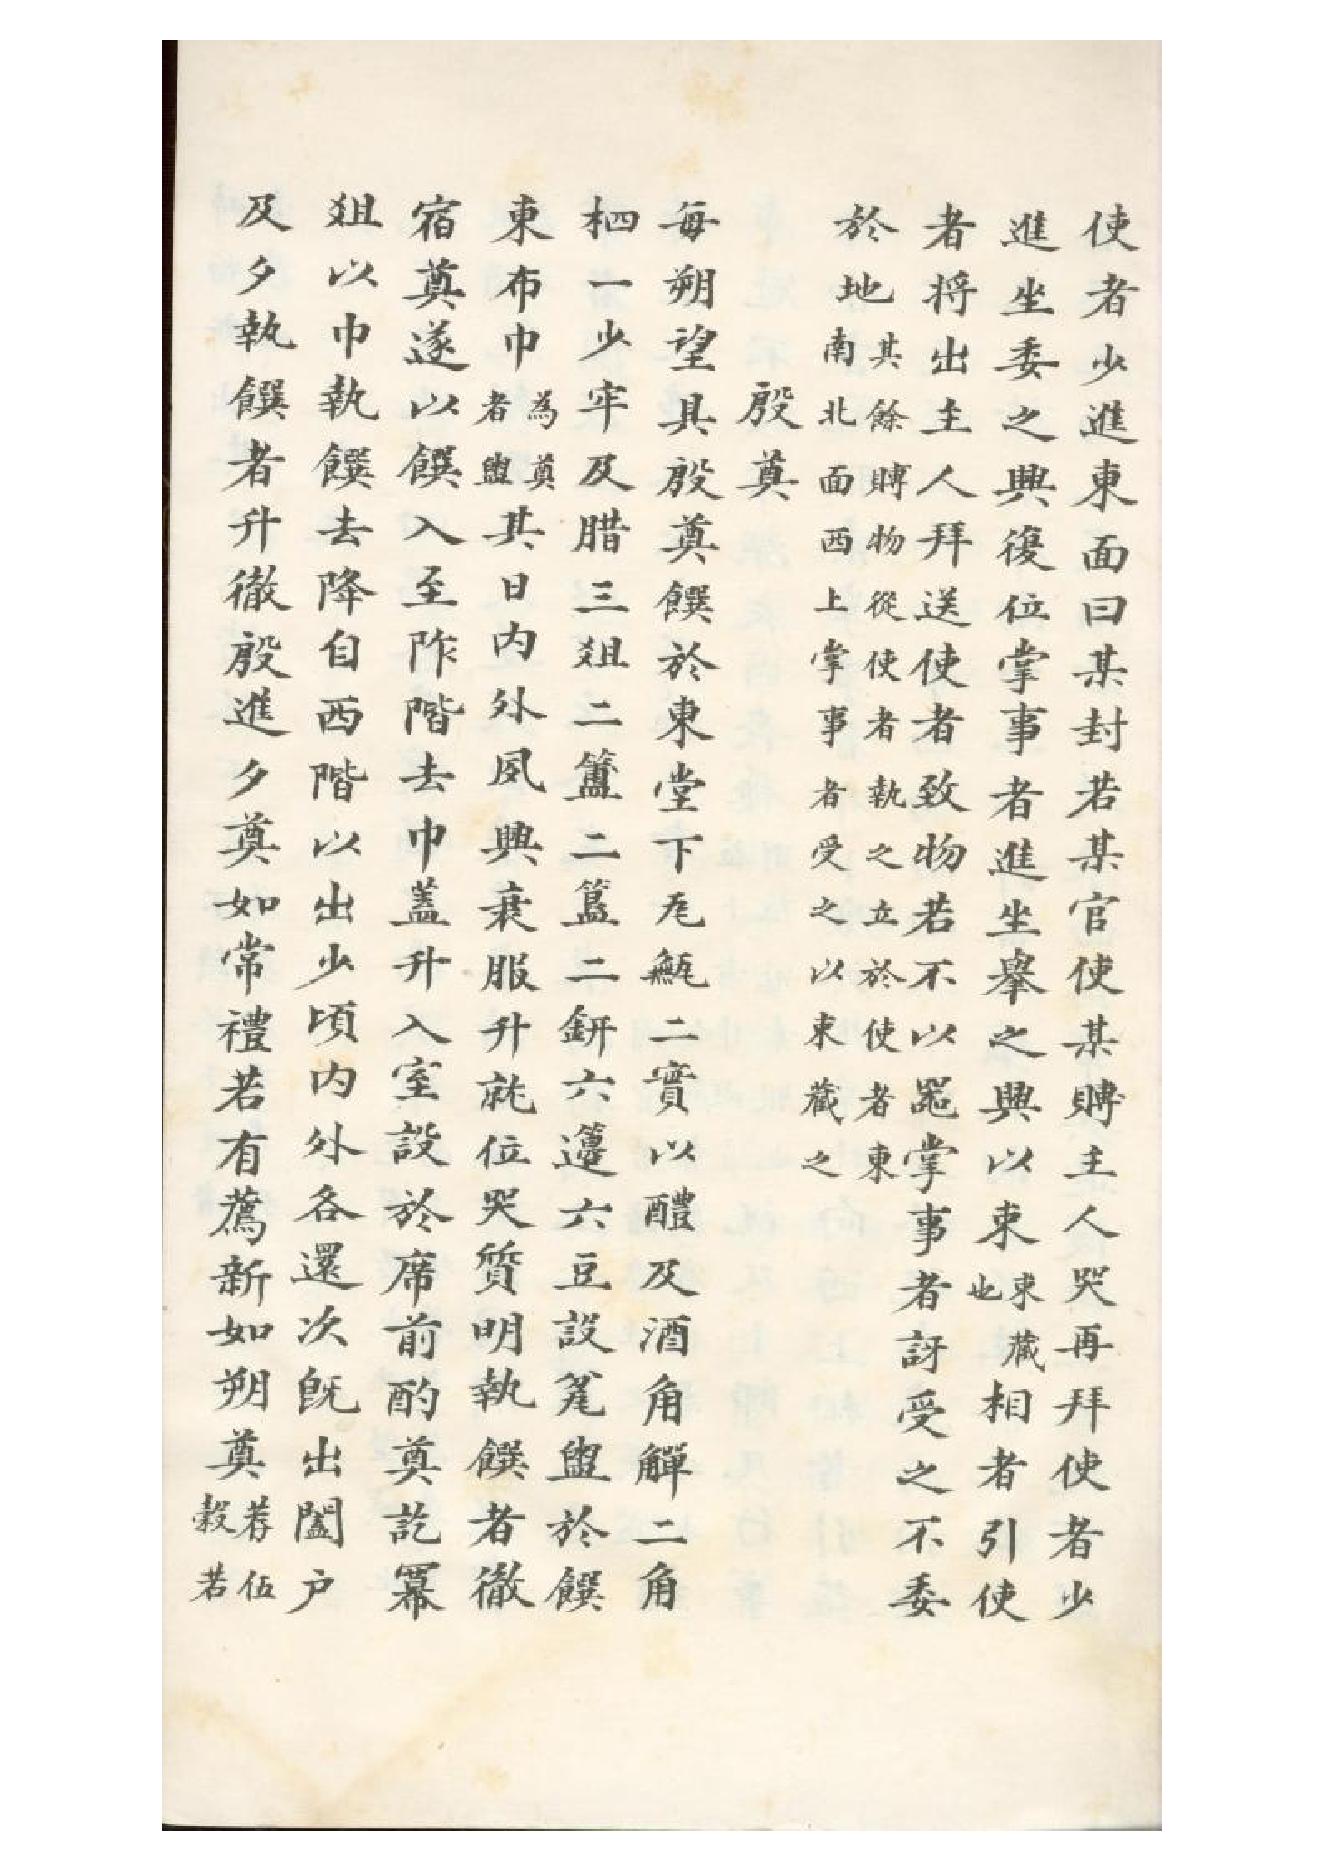 使者少進東面曰某封若某官使某賻主人哭再拜使者少
進坐委之興復位掌事者進坐舉之興以東東藏也相者引使
者將出主人拜送使者致物若不以器掌事者訝受之不委
於地其餘賻物從使者執之立於使者東南北面西上掌事者受之以東藏之
殷奠
每朔望具殷奠饌於東堂下瓦甒二實以醴及酒角觶二角
柶一少牢及腊三俎二簠二簋二鉶六籩六豆設筵盥於饌
東布巾為奠者盥其日内外夙興衰服升就位哭質明執饌者徹
宿奠遂以饌入至阼階去巾蓋升入室設於席前酌奠訖冪
俎以巾執饌去降自西階以出少頃内外各還次既出闔戶
及夕執饌者升徹殷進夕奠如常禮若有薦新如朔奠荐伍穀若